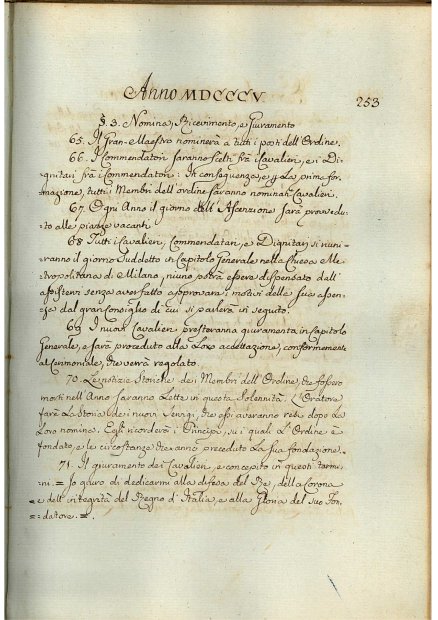 Anno MDCCCV
253
§. 3. Nomina, Ricevimento, e Giuramento
65. Il Gran-Maestro nominerà a tutti i posti dell'Ordine.
66. I Commendatori saranno scelti frà i Cavalieri, e i Di-
gnitari frà i Commendatori: In conseguenza, e per La prima for-
mazione, tutti i Membri dell'ordine saranno nominati Cavalieri.
67. Ogni Anno il giorno dell'Ascenzione sarà provedu-
to alle piazze vacanti.
68 Tutti i Cavalieri, Commendatari, e Dignitari si runi-
ranno il giorno Suddetto in Capitolo Generale nella Chiesa Me-
tropolitana di Milano, niuno potrà essere dispensato dall'
assistervi senza aver fatto approvare i motivi della sua assen-
za dal gran Consiglio di cui si parlerà in seguito.
69 I nuovi Cavalieri presteranno giuramento in Capitolo
Generale, e sarà proceduto alla Loro accettazione, conformemente
al Cerimoniale, che verrà regolato.
70. Le notizie Storiche dei Membri dell'Ordine, che fossero
morti nell'Anno Saranno Lette in questa Solennità. L'Oratore
farà La Storia dei nuovi servigi, che essi averanno resi dopo La
Loro nomina. Egli ricorderà i Principj, su i quali L'Ordine è
fondato, e le circostanze che anno preceduto La sua fondazione.
71. Il giuramento dei Cavalieri, è concepito in questi termi-
ni. = Io giuro di dedicarmi alla difesa del Re, della Corona
= e dell'integrità del Regno d'Italia, e alla Gloria del suo Fon-
= datore. =.